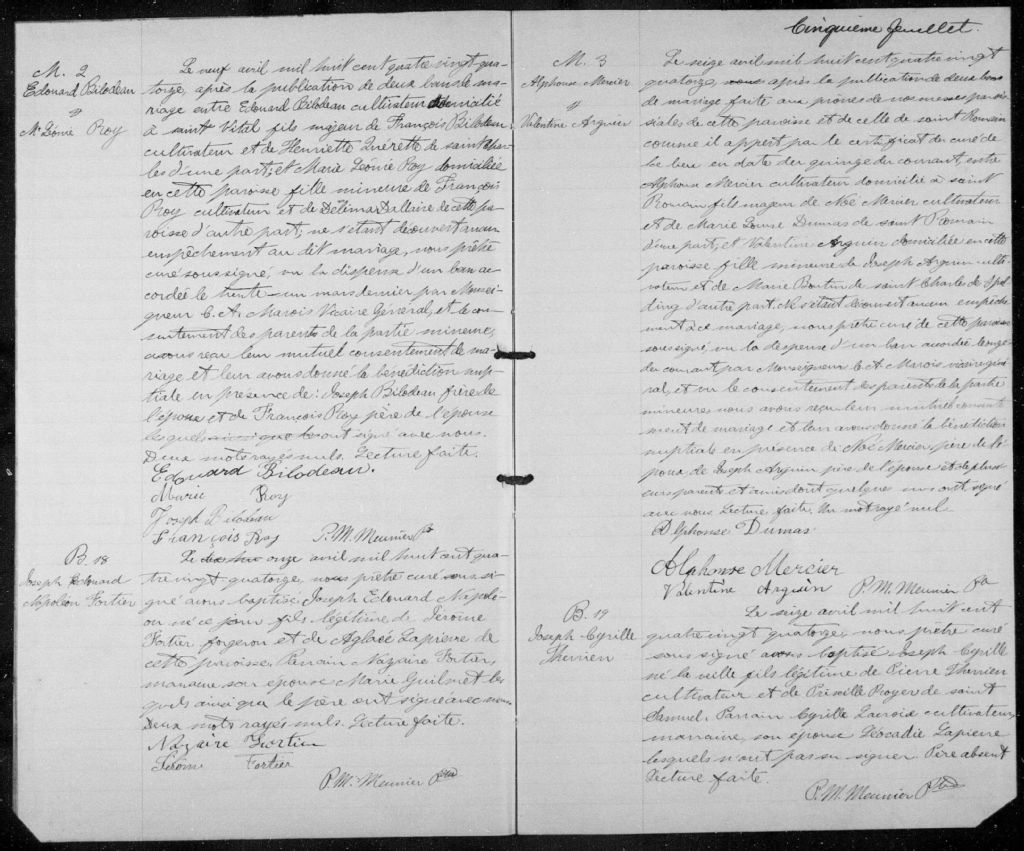 M. 2
Edouard Bilodeau
&
Mie Léonie Roy
Le neuf avril mil huit cent quatre vingt qua-
torze, après la publication de deux bans de ma-
riage entre Edouard Bilodeau cultivateur domicilié
à saint Vital fils majeur de François Bilodeau
cultivateur et de Henriette de saint Char-
les d'une part; et Marie Léonie Roy domiciliée
en cette paroisse fille mineure de François
Roy cultivateur et de Délima Dallaire de cette pa-
roisse d'autre part; ne s'étant découvert aucun
empêchement au dit mariage, nous prêtre
curé soussigné, vu la dispense d'un ban ac-
cordée le trente-un mars dernier par Monsei-
gneur C. A. Marois Vicaire Général, et le con-
sentement des parents de la partie mineure,
avons reçu leur mutuel consentement de ma-
riage et leur avons donné la bénédiction nup-
tiale en présence de: Joseph Bilodeau frère de
l'époux et de François Roy père de l'épouse
lesquels ainsi que les ont signé avec nous.
Deux mots rayés nuls. Lecture faite.
Edouard Bilodeau.
Marie Roy
Joseph Bilodeau
François Roy P. M. Meunier Ptre
B. 18
Joseph Edouard
Napoléon Fortier
Le onze avril mil huit cent qua-
tre vingt quatorze, nous prêtre curé sous si-
gné avons baptisé Joseph Edouard Napolé-
on né ce jour fils légitime de Jérôme
Fortier forgeron et de Aglaée Lapierre de
cette paroisse. Parrain Nazaire Fortier,
marraine son épouse Marie les
quels ainsi que le père ont signé avec nous.
Deux mots rayés nuls. Lecture faite.
Nazaire Fortier
Jérôme Fortier
P. M. Meunier Ptre
Cinquième feuillet.
M. 3
Alphonse Mercier
&
Valentine Arguin
Le seize avril mil huit cent quatre vingt
quatorze, nous après la publication de deux bans
de mariage faite aux prônes de nos messes parois-
siales de cette paroisse et de celle de saint Romain
comme il appert par le certificat du curé de
ce lieu en date du quinze du courant, entre
Alphonse Mercier cultivateur domicilié à saint
Romain fils majeur de Noé Mercier cultivateur
et de Marie Louise Dumas de saint Romain
d'une part, et Valentine Arguin domiciliée en cette
paroisse fille mineure de Joseph Arguin culti-
vateur et de Marie Boutin de saint Charles de Spal-
ding d'autre part. Ne s'étant découvert aucun empêche-
ment à ce mariage, nous prêtre curé de cette paroisse
soussigné, vu la dispense d'un ban accordée le onze
du courant par Monseigneur C. A. Marois vicaire géné-
ral, et vu le consentement des parents de la partie
mineure, nous avons reçu leur mutuel consente-
ment de mariage et leur avons donné la bénédiction
nuptiale en présence de Noé Mercier père de l'é-
poux, de Joseph Arguin père de l'épouse et de plusi-
eurs parents et amis dont quelques uns ont signé
avec nous. Lecture faite. Un mot rayé nul
Alphonse Dumas
Alphonse Mercier
Valentine Arguin P. M. Meunier Ptre
B. 19
Joseph Cyrille
Therrien
Le seize avril mil huit cent
quatre vingt quatorze, nous prêtre curé
sous signé avons baptisé Joseph Cyrille
né la veille fils légitime de Pierre Therrien
cultivateur et de Priscille Royer de saint
Samuel. Parrain Cyrille Lacroix cultivateur,
marraine, son épouse Léocadie Lapierre
lesquels n'ont pas su signer. Père absent
Lecture faite.
P. M. Meunier Ptre